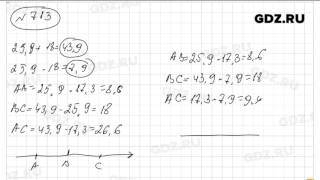 GDZ.RU
N 713
25,9 + 18 = 43,9
25,9 - 18 = 7,9
AA = 25,9 - 17,3 = 8,6
BC = 43,9 - 25,9 = 18
AC = 43,9 - 17,3 = 26,6
A B C
AB = 25,9 - 17,3 = 8,6
BC = 43,9 - 7,9 = 18
AC = 17,3 - 7,9 = 9,4